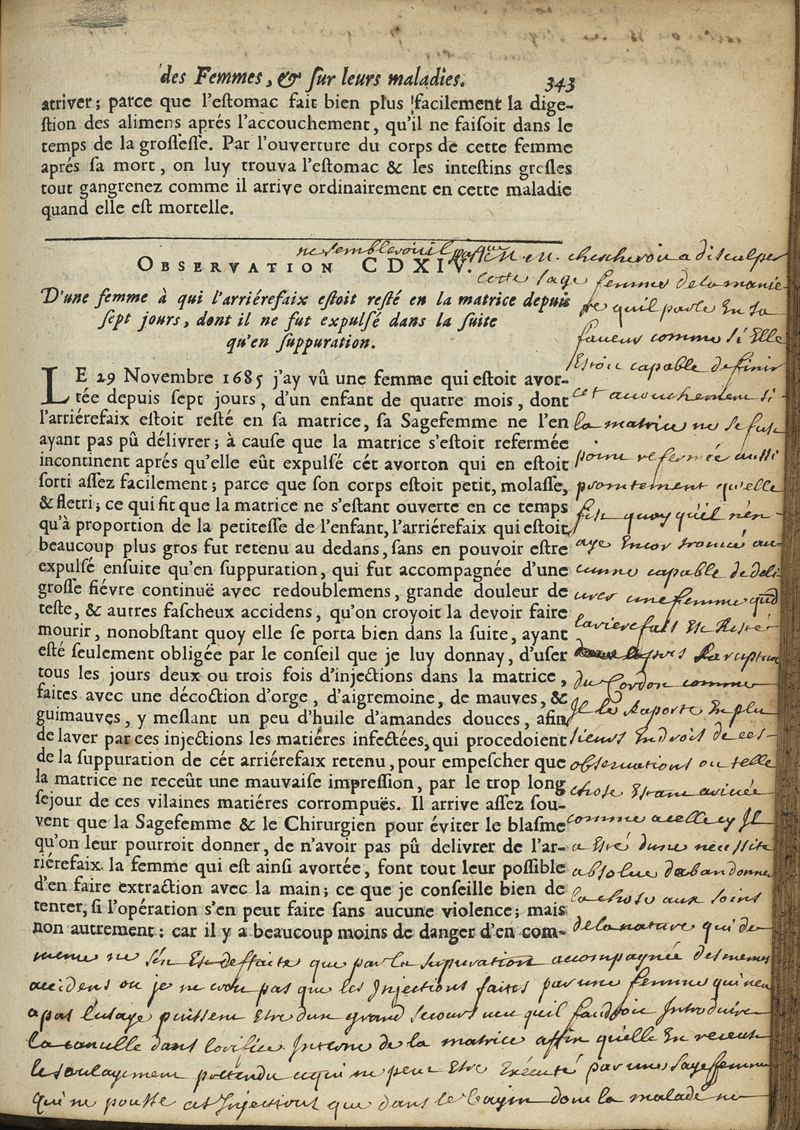 des Femmes, & ſur leurs maladies. 343
arriver; parce que l'eſtomac fait bien plus facilement la dige-
ſtion des alimens aprés l'accouchement, qu'il ne faiſoit dans le
temps de la groſſeſſe. Par l'ouverture du corps de cette femme
aprés ſa mort, on luy trouva l'eſtomac & les inteſtins greſles
tout gangrenez comme il arrive ordinairement en cette maladie
quand elle eſt mortelle.
OBSERVATION CDXIV.
D'une femme à qui l'arriérefaix eſtoit reſté en la matrice depuis
ſept jours, dont il ne fut expulſé dans la ſuite
qu'en ſuppuration.
LE 29 Novembre 1685 j'ay vû une femme qui eſtoit avor-
tée depuis ſept jours, d'un enfant de quatre mois, dont
l'arriérefaix eſtoit reſté en ſa matrice, ſa Sagefemme ne l'en
ayant pas pû délivrer; à cauſe que la matrice s'eſtoit refermée
incontinent aprés qu'elle eût expulſé cét avorton qui en eſtoit
ſorti aſſez facilement; parce que ſon corps eſtoit petit, molaſſe,
& fletri; ce qui fit que la matrice ne s'eſtant ouverte en ce temps
qu'à proportion de la petiteſſe de l'enfant, l'arriérefaix qui eſtoit
beaucoup plus gros fut retenu au dedans, ſans en pouvoir eſtre
expulſé enſuite qu'en ſuppuration, qui fut accompagnée d'une
groſſe fiévre continuë avec redoublemens, grande douleur de
teſte, & autres faſcheux accidens, qu'on croyoit la devoir faire
mourir, nonobſtant quoy elle ſe porta bien dans la ſuite, ayant
eſté ſeulement obligée par le conſeil que je luy donnay, d'uſer
tous les jours deux ou trois fois d'injections dans la matrice,
faites avec une décoction d'orge, d'aigremoine, de mauves, &
guimauves, y meſlant un peu d'huile d'amandes douces, afin
de laver par ces injections les matiéres infectées, qui procedoient
de la ſuppuration de cét arriérefaix retenu, pour empeſcher que
la matrice ne receût une mauvaiſe impreſſion, par le trop long
ſejour de ces vilaines matiéres corrompuës. Il arrive aſſez ſou-
vent que la Sagefemme & le Chirurgien pour éviter le blaſme
qu'on leur pourroit donner, de n'avoir pas pû delivrer de l'ar-
riérefaix la femme qui eſt ainſi avortée, font tout leur poſſible
d'en faire extraction avec la main; ce que je conſeille bien de
tenter, ſi l'opération s'en peut faire ſans aucune violence; mais
non autrement: car il y a beaucoup moins de danger d'en com-
ne semble
chercheroit a disculper
cette sage femme de la manie
re quil parle En sa
faveur comme si Elle
Estoit capable de finir
cet accouchement si
la matrice ne se fust
point refermée aussi
promtement quelle
fist quoy quil n'en
aye Encor trouvé au
cunne capable de deli
vrer une femme qud
larierefais Est Rester
apres la ruption
du Cordon comme
Il le Raporte En plu
sieurs Endrois de ces
observations ou telle
chose Estant arivée
comme a celle cy Il
a Esté dune necessité
absolue dabandonner
la chose aux soins
de la nature qui de
meme ne sén Est deffaite que par la supuration accompagnée des memes
accidens ou je ne croy pas que les Injections faites par une femme qui nen
a pas l'usage puissent Estre dun grand secours veu quil faudroit Introduire
la canulle dans lorifice Interne de la matrice affin qu'elle En recent
le soulagement pretendu ce qui ne peut Estre Exécuté par une sage femme
qui ne pousse ces Injections que dans le Vagin dont la malade ne